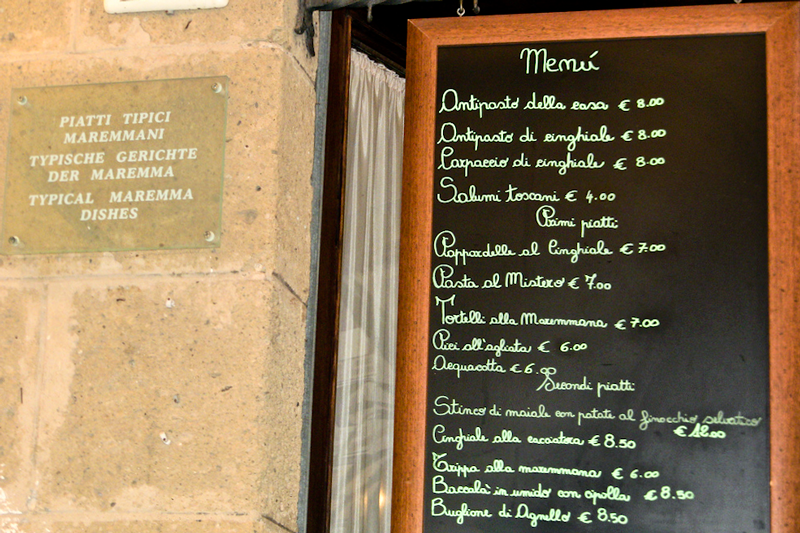 PIATTI TIPICI
MAREMMANI
TYPISCHE GERICHTE
DER MAREMMA
TYPICAL MAREMMA
DISHES
Menú
Antipasto della casa € 8.00
Antipasto di cinghiale € 8.00
Carpaccio di cinghiale € 8.00
Salumi toscani € 4.00
Primi piatti:
Pappardelle al Cinghiale € 7.00
Pasta al Mistero € 7.00
Tortelli alla Maremmana € 7.00
Pici all'agliata € 6.00
Acquacotta € 6.00
Secondi piatti:
Stinco di maiale con patate al finocchio selvatico
€ 12.00
Cinghiale alla cacciatora € 8.50
Trippa alla maremmana € 6.00
Baccalà in umido con cipolla € 8.50
Buglione di Agnello € 8.50